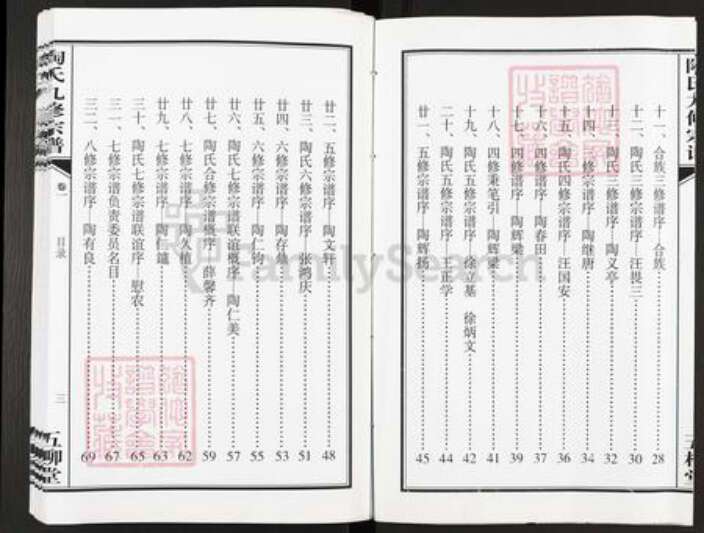 十一、合族三修谱序——合族 28
十二、陶氏三修宗谱序——汪畏三 30
十三、陶氏三修谱序——陶文亭 32
十四、修宗谱序——陶继唐 34
十五、陶氏四修宗谱序——汪国安 36
十六、四修宗谱序——陶春田 37
十七、四修谱序——陶辉梁 39
十八、四修秉笔引——陶辉梁 41
十九、陶氏五修宗谱序——徐立基 徐炳文 42
二十、陶氏五修宗谱序——正学 44
廿一、五修宗谱序——陶辉扬 45
廿二、五修宗谱序——陶文轩 48
廿三、陶氏六修宗谱序——张鸿庆 51
廿四、六修宗谱序——陶存鼎 53
廿五、六修宗谱序——陶仁钧 55
廿六、陶氏七修宗谱联谊概序——陶仁美 57
廿七、陶氏合修宗谱概序——薛馨齐 59
廿八、七修宗谱序——陶久植 62
廿九、七修宗谱序——陶仁鑪 63
三十、陶氏七修宗谱联谊序——慰农 65
三一、七修宗谱负责委员名目 67
三二、八修宗谱序——陶有良 69
陶氏九修宗谱
卷一
目录
三
五柳堂
FamilySearch